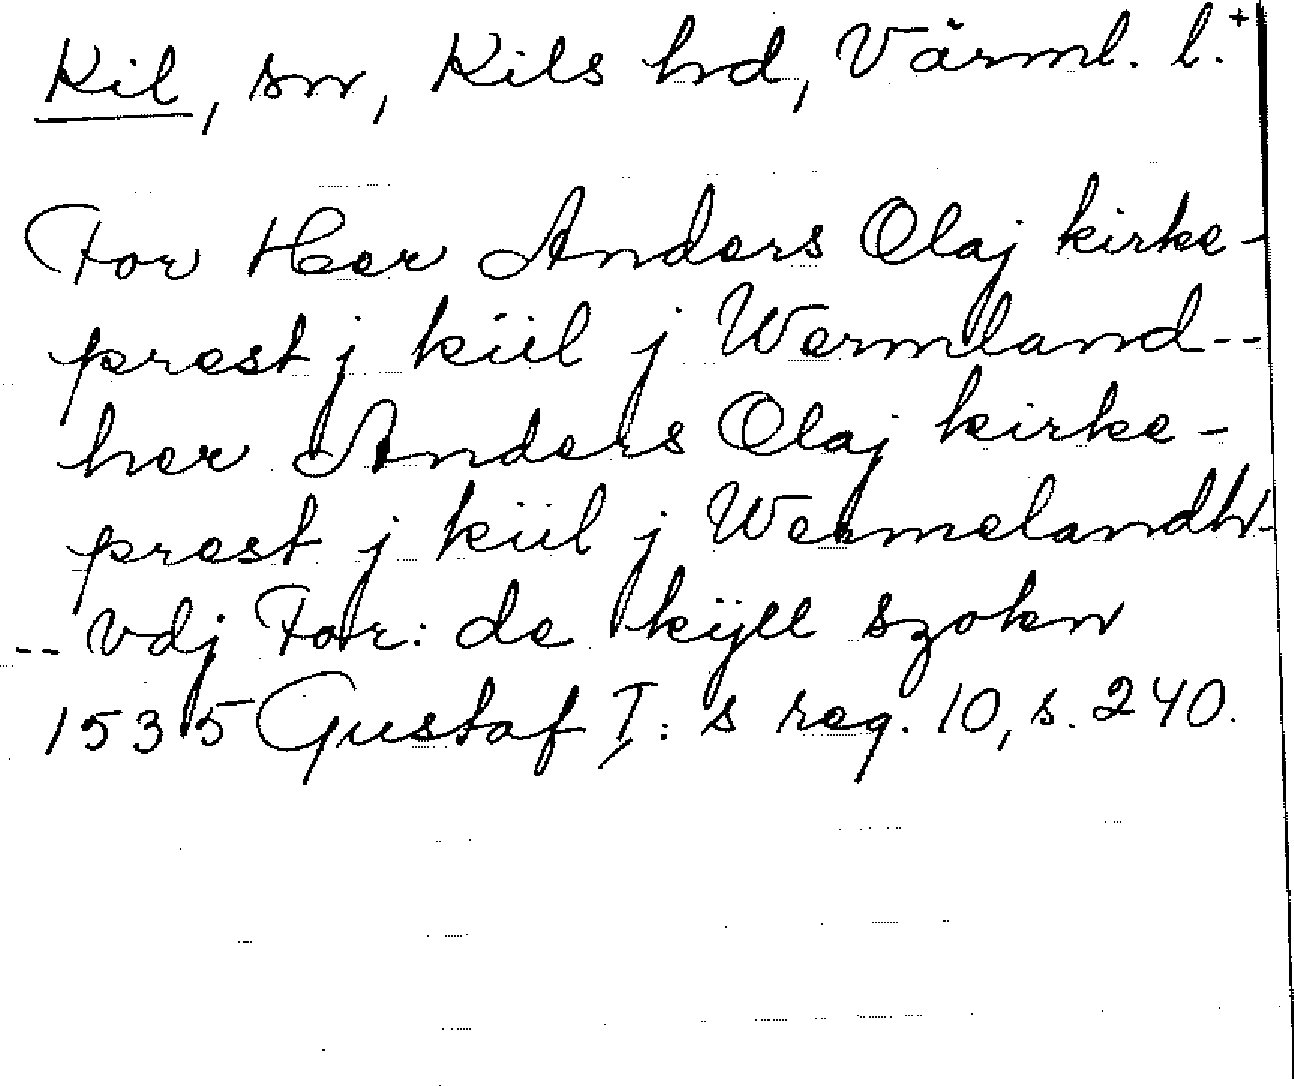 Kil, sn, Kils hd, Värml. l.+
For Her Anders Olaj kirke-
prest j kiil j Wermland--
her Anders Olaj kirke-
prest j kiil j Wermelandh-
-- vdj For: de kÿll szokn
1535 Gustaf I:s reg. 10, s. 240.